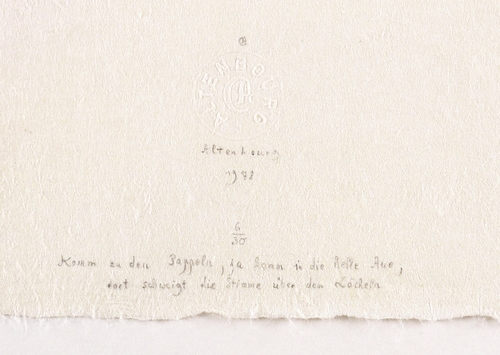 ALTENBOURG
Altenbourg
1978
6/30
Komm zu den Pappeln, ja komm in die helle Aue,
dort schweigt die Stimme über den Lächeln